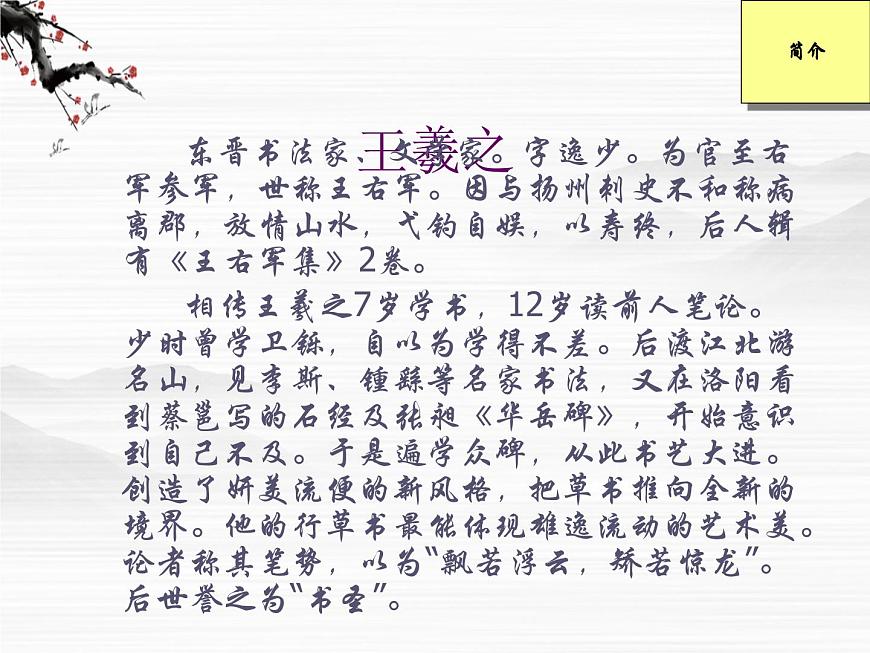 简介
王羲之
东晋书法家、文学家。字逸少。为官至右
军参军，世称王右军。因与扬州刺史不和称病
离郡，放情山水，弋钓自娱，以寿终，后人辑
有《王右军集》2卷。
相传王羲之7岁学书，12岁读前人笔论。
少时曾学卫铄，自以为学得不差。后渡江北游
名山，见李斯、锺繇等名家书法，又在洛阳看
到蔡邕写的石经及张昶《华岳碑》，开始意识
到自己不及。于是遍学众碑，从此书艺大进。
创造了妍美流便的新风格，把草书推向全新的
境界。他的行草书最能体现雄逸流动的艺术美。
论者称其笔势，以为“飘若浮云，矫若惊龙”。
后世誉之为“书圣”。